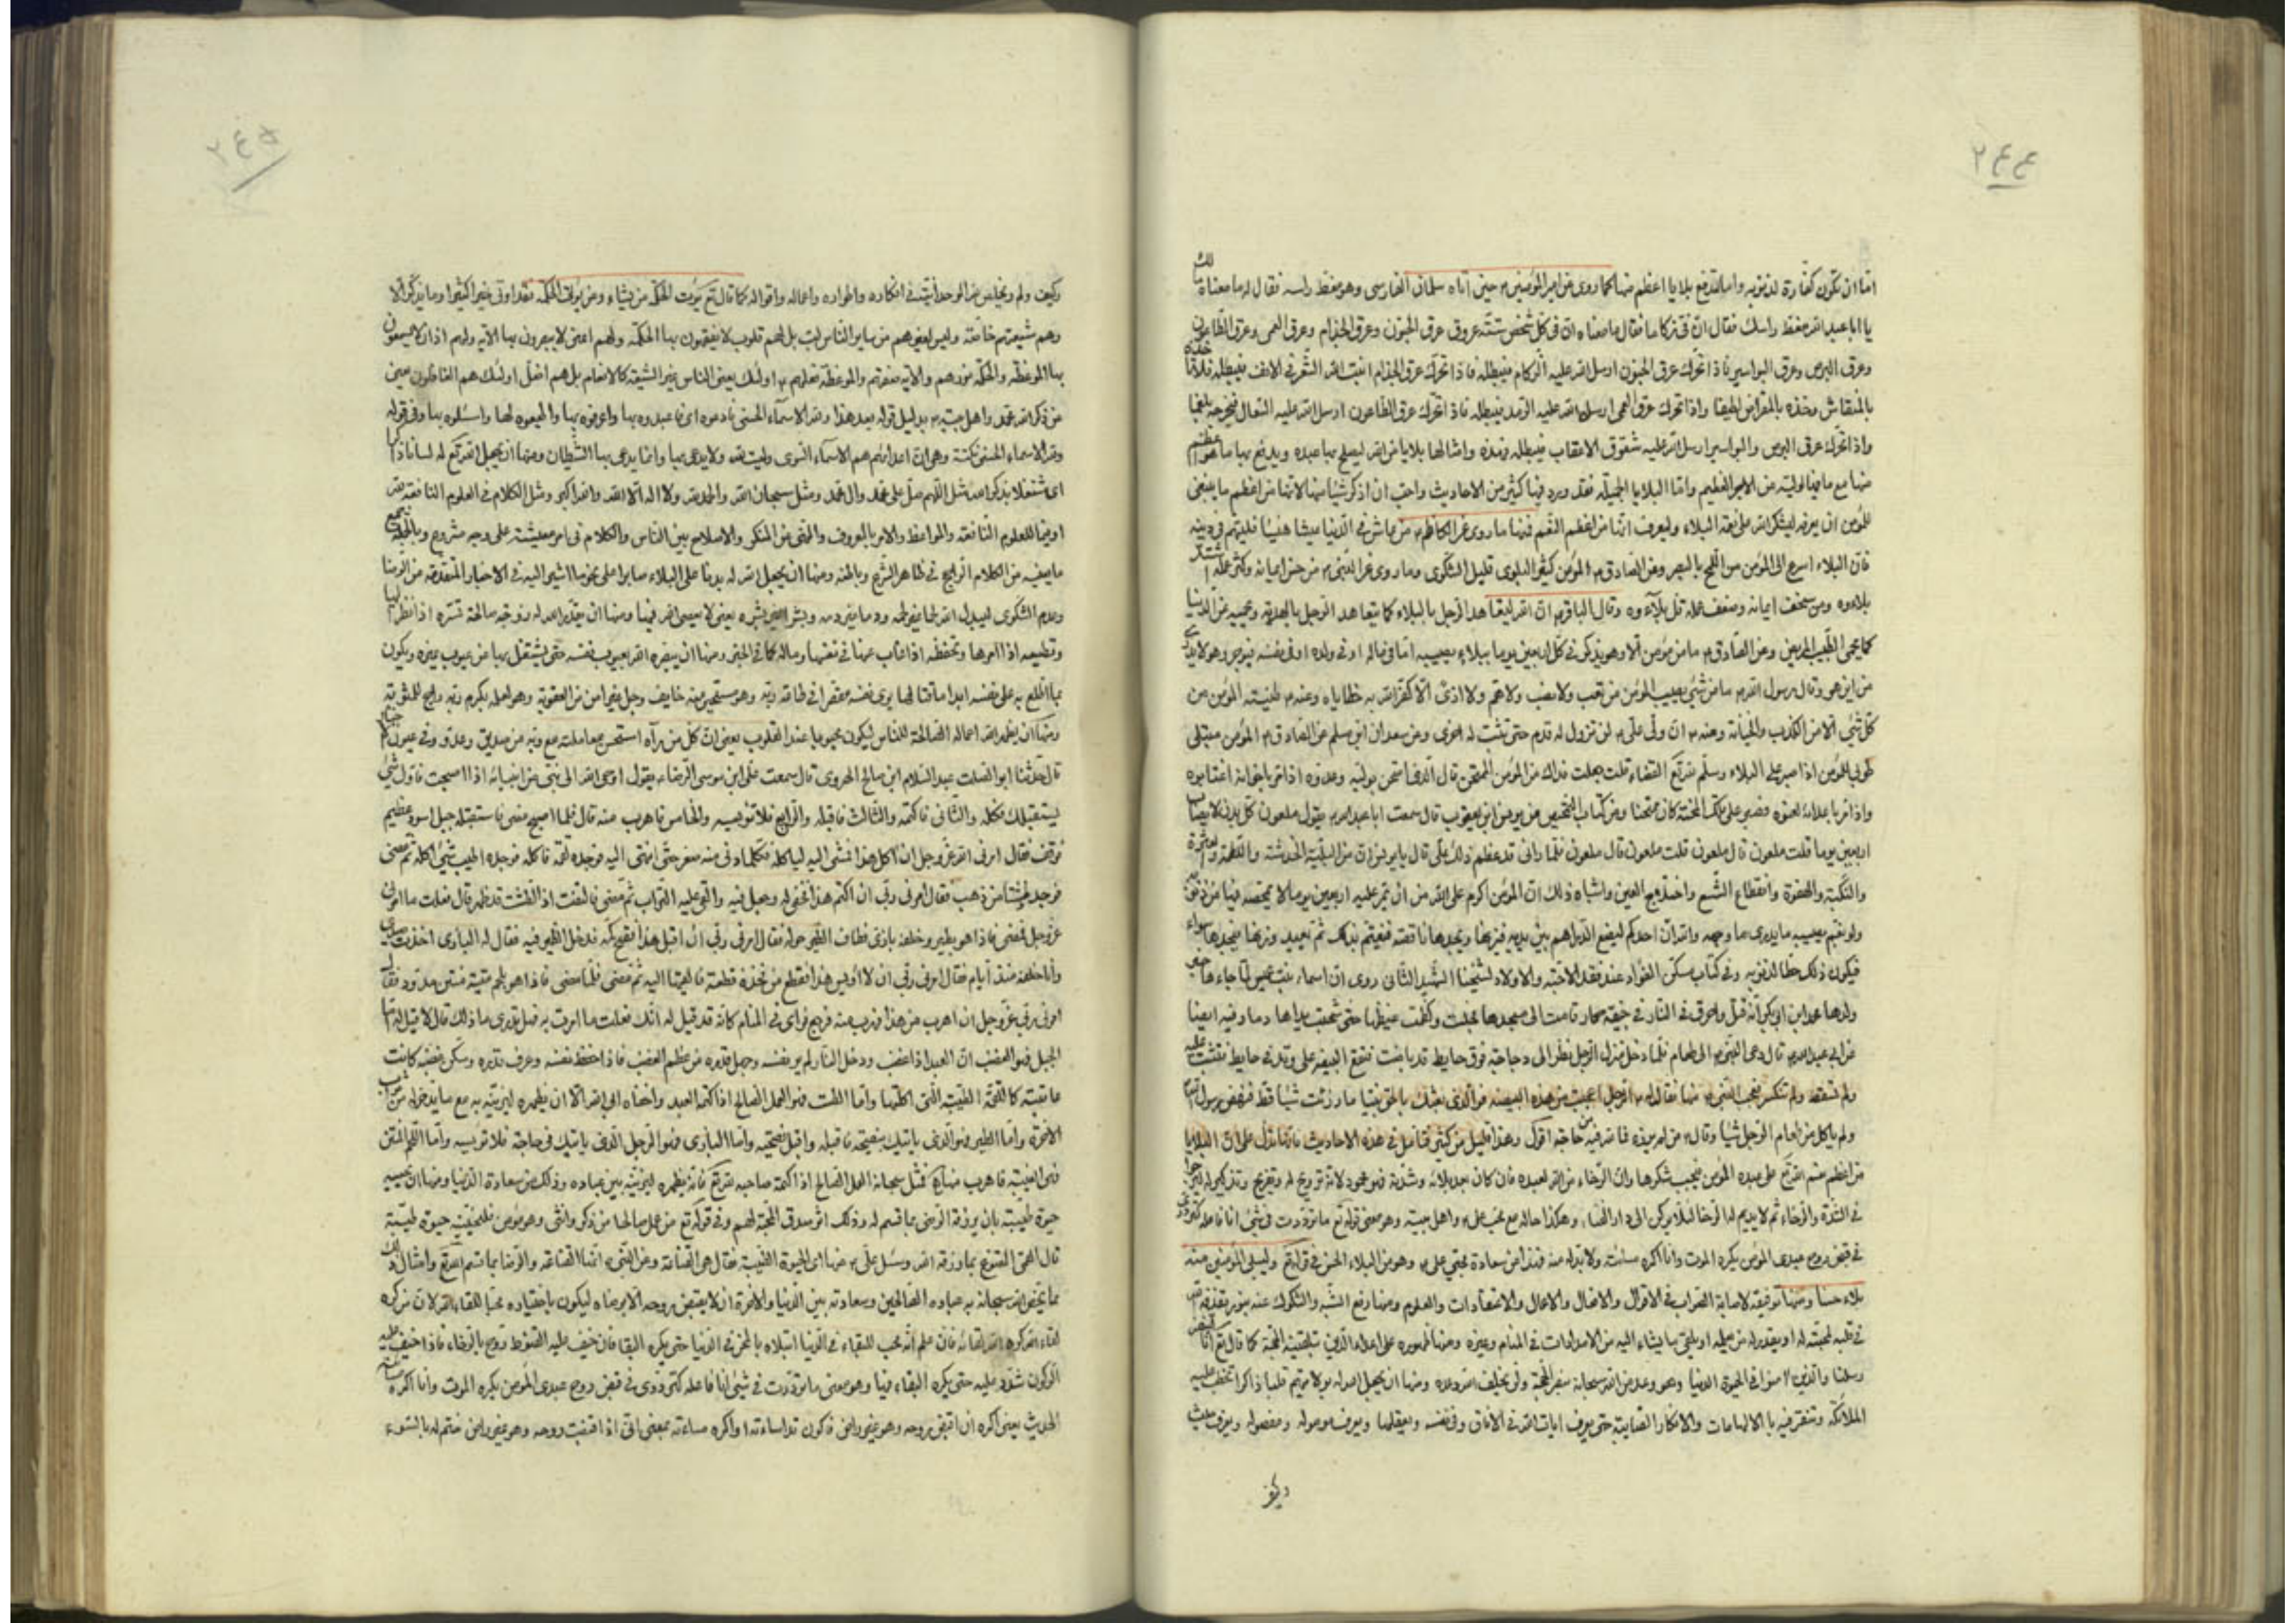 ٢٤٤
امّا ان تكون كفّارة لذنوبه واما لتدفع بلايا اعظم منها كما روى عن امير المؤمنين ع حين اتاه سلمان الفارسى وهو مغطّ راسه فقال له ما معناه مالك
يا ابا عبد الله مغط راسك فقال انّ فىّ زكاما فقال ما معناه انّ فى كلّ شخص ستّة عروق عرق الجنون وعرق الجذام وعرق العمى وعرق الطّاعون
وعرق البرص وعرق البواسير فاذا تحرّك عرق الجنون ارسل الله عليه الزكام فيبطله فاذا تحرّك عرق الجذام انبت الله الشعر فى الانف فيبطله فلا
بالمنقاش وخذه بالمقراض واذا تحرّك عرق العمى ارسل الله عليه الرّمد فيبطله فاذا تحرّك عرق الطّاعون ارسل الله عليه السّعال فيخرجه بلغما
واذا تحرّك عرق البرص والبواسير ارسل الله عليه شقوق الاعقاب فيبطله فهذه وامثالها بلايا من الله ليصلح بها عبده ويدفع بها ما هو اعظم
منها مع ما فيها لوليّه من الاجر العظيم وامّا البلايا الجميلة فقد ورد فيها كثير من الاحاديث واحبّ ان اذكر شيئا منها لانّها من اعظم ما ينبغى
للمؤمن ان يعرفه ليشكر الله على نعمة البلاء وليعرف انّها من اعظم النّعم فمنها ما روى عن الكاظم ع من عاش فى الدّنيا عيشا هنيئا فليتهم فى دينه
فانّ البلاء اسرع الى المؤمن من اللّمح بالبصر وعن الصّادق ع المؤمن كثير البلوى قليل الشكوى وما روى عن النّبى ص من حسن ايمانه وكثر عمله اشتدّ
بلاءوه ومن سخف ايمانه وضعف عمله قلّ بلآءوه وقال الباقر ع انّ الله ليتعاهد الرجل بالبلاء كما يتعاهد الرجل بالهدية ويحميه عن الدّنيا
كما يحمى الطّبيب المريض وعن الصّادق ع ما من مؤمن الّا وهو يذكر فى كلّ اربعين يوما ببلاء يصيبه امّا فى ماله او فى ولده او فى نفسه فيوجر وهو لا يدرى
من اين هو وقال رسول الله ص ما من شىء يصيب المؤمن من تعب ولا نصب ولا همّ ولا اذىً الّا كفر الله به خطاياه وعنه ع طينة المؤمن من
كلّ شىء الّا من الكذب والخيانة وعنه ع انّ ولىّ علىّ ع لن تزول له قدم حتى تثبت له اخرى وعن سعدان ابن مسلم عن الصّادق ع المؤمن مبتلى
طوبى للمؤمن اذا صبر على البلاء وسلّم لله تع القضاء قلت جعلت فداك من المؤمن الممتحن قال الّذى امتحن بوليّه وعدوّه اذا مرّ باخوانه اغتابوه
واذا مرّ باعدائه لعنوه فصبر على تلك المحنة كان ممتحنا ومن كتاب التمحيص عن يونس ابن يعقوب قال سمعت ابا عبد الله ع يقول ملعون كلّ بدن لا يصاب
اربعين يوما قلت ملعون قال ملعون قلت ملعون قال ملعون فلمّا رانى قد عظم ذلك علىّ قال يا يونس انّ من البليّة الخدشة واللّطمة والعثرة
والنّكبة والهفوة وانقطاع الشّسع واختلاج العين واشباه ذلك انّ المؤمن اكرم على الله من ان تمرّ عليه اربعين يوما لا يمحّصه فيها من ذنوبه
ولو بغمّ يصيبه ما يدرى ما وجهه والله انّ احدكم ليضع الدّراهم بين يديه فيزنها فيجدها ناقصة فيغتم بذلك ثم يعيد وزنها فيجدها سواء
فيكون ذلك حطّا لذنوبه وفى كتاب مسكن الفؤاد عند فقد الاحبّة والاولاد لشيخنا الشّهيد الثّانى روى انّ اسماء بنت عميس لمّا جاءها خبر
ولدها محمد ابن ابى بكر انّه قتل واحرق فى النّار فى جيفة حمار قامت الى مسجدها فجلست وكظمت غيظها حتى شخبت ثدياها دما وفيه ايضا
عن ابى عبد الله ع قال دعى النّبى ص الى طعام فلمّا دخل منزل الرجل نظر الى دجاجة فوق حايط قد باضت فتقع البيضه على وتد فى حايط فثبتت عليه
ولم تسقط ولم تنكسر فتعجّب النّبى ص منها فقال له الرجل اعجبت من هذه البيضه فو الّذى بعثك بالحق نبيّا ما رزئت شيئا قطّ فنهض رسول الله ص
ولم ياكل من طعام الرّجل شيئا وقال ص من لم يرزه فما لله فيه من حاجة اقول وهذا قليل من كثير فتامّل فى هذه الاحاديث فانّها تدلّ على انّ البلايا
من اعظم منن الله تع على عبده المؤمن فيجب شكرها وانّ الرّخاء من الله لعبده فان كان بعد بلائه وشدّته فهو محمود لانّه ترويح له وتفريج وتذكير له
فى الشّدّة والرخاء ثم لا يديم له الرخا لئلا يركن الى دار الفناء وهكذا حاله مع محبّ على ع واهل بيته وهو معنى قوله تع ما تردّدت فى شىء انا فاعله كتردّدى
فى قبض روح عبدى المؤمن يكره الموت وانا اكره مسائته ولا بدّ له منه فهذا من سعادة محبّى على ع وهو من البلاء الحسن فى قوله تع وليبلى المؤمنين منه
بلاء حسنا ومنها توفيقه لاصابة الصّواب فى الاقوال والافعال والاعمال والاعتقادات والعلوم ومنها رفع الشّبه والشكوك عنه بنور يقذفه الله
فى قلبه لمحبّته له او يقدّر له من يعلّمه او يلقى ما يشاء اليه من الامدادات فى المنام وغيره ومنها نصوره على اعداء الدّين بتلقينه الحجّة كما قال تع انّا لننصر
رسلنا والّذين امنوا فى الحيوة الدّنيا وهو وعد من الله سبحانه بنصر الحجّة ولن يخلف الله وعده ومنها ان يجعل الله له قلبا ذاكرا تختلف عليه
الملائكة وتنقر فيه بالالهامات والافكار الصّايبة حتى يعرف ايات الله فى الافاق وفى نفسه ويعقلها ويعرف موصوله ومفصوله ويعرف حيث
وكيف
٢٤٥
وكيف ولم ويخلص لله الوحدانيّة فى افكاره واطواره واعماله واقواله كما قال تع يؤت الحكمة من يشاء ومن يؤت الحكمة فقد اوتى خيرا كثيرا وما يذّكر الّا
وهم شيعتهم خاصّة وليس لغيرهم من ساير النّاس لبّ بل لهم قلوب لا يفقهون بها الحكمة ولهم اعين لا يبصرون بها الآية ولهم اذان لا يسمعون
بها الموعظة والحكمة نورهم والآية معرفتهم والموعظة تعليمهم ع اولئك يعنى الناس غير الشّيعة كالانعام بل هم اضلّ اولئك هم الغافلون يعنى
عن ذكر الله محمد واهل بيته ع بدليل قوله بعد هذا ولله الاسماء الحسنى فادعوه بها اى فاعبدوه بها واعرفوه بها واطيعوه لها واسئلوه بها وفى قوله
ولله الاسماء الحسنى نكتة وهى انّ اعدائهم هم الاسماء السّوى وليست لله ولا يدعى بها وانّما يدعى بها الشّيطان ومنها ان يجعل الله تع له لسانا ذاكرا
اى مشتغلا بذكر الله مثل اللّهم صلّ على محمد وال محمد ومثل سبحان الله والحمد لله ولا اله الّا الله والله اكبر ومثل الكلام فى العلوم النّافعة
او فيما للعلوم النّافعة والمواعظ والامر بالمعروف والنّهى عن المنكر والاصلاح بين النّاس والكلام فى امر معيشته على وجه مشروع وبالجملة جميع
ما يعنيه من الكلام الرّاجح فى ظاهر الشّرع وباطنه ومنها ان يجعل الله له بدنا على البلاء صابرا على نحو ما اشير اليه فى الاخبار المتقدّمة من الرّضا
وعدم الشكوى ومنها ان يقدّر الله له زوجة صالحة تسرّه اذا نظر اليها
وتطيعه اذا امرها وتحفظه اذا غاب عنها فى نفسها وماله كما فى الخبر ومنها ان يبصره الله بعيوب نفسه حتى يشتغل بها عن عيوب غيره ويكون
بما اطلع به على نفسه ابدا ماقتا لها يرى نفسه مقصرا فى طاعة ربّه وهو مستحى منه خايف وجل غير امن من العقوبة وهو لعلمه بكرم ربّه راج للمثوبة
ومنها ان يظهر الله اعماله الصّالحة للنّاس ليكون محبوبا عند القلوب يعنى انّ كلّ من رآه استحسن معاملته مع ربّه من صديق وعدوّ وفى عيون الاخبار
قال حدّثنا ابو الصّلت عبد السّلام ابن صالح الهروى قال سمعت على ابن موسى الرّضا ع يقول اوحى الله الى نبىّ من انبيائه اذا اصبحت فاوّل شىء
يستقبلك فكله والثّانى فاكتمه والثّالث فاقبله والرّابع فلا تؤيسه والخامس فاهرب منه قال فلمّا اصبح مضى فاستقبله جبل اسود عظيم
فوقف فقال امرنى ربى عزّ وجل ان اكل هذا فمشى اليه لياكله فكلّما دنى منه صغر حتّى انتهى اليه فوجده لقمة فاكله فوجده اطيب شىء اكله ثم مضى
فوجد طشتا من ذهب فقال امرنى ربّى ان اكتم هذا فحفر له وجعل فيه والقى عليه التّراب ثم مضى فالتفت اذا الطشت قد ظهر قال فعلت ما امرنى
عزّ وجل فمضى فاذا هو بطير وخلفه بازى فطاف الطّير حوله فقال امرنى ربّى ان اقبل هذا ففتح كمّه فدخل الطّير فيه فقال له البازى اخذت صيدى
وانا خلفه منذ ايام فقال امرنى ربّى ان لا اؤيس هذا فقطع من فخذه قطعة فالقاها اليه ثم مضى فلمّا مضى فاذا هو بلحم ميتة منتن مدوّد فقال
امرنى ربّى عزّ وجل ان اهرب من هذا فهرب منه فرجع فراى فى المنام كانّه قد قيل له انّك فعلت ما امرت به فهل تدرى ما ذلك قال لا قيل له امّا
الجبل فهو الغضب انّ العبد اذا غضب لم ير نفسه وجهل قدره من عظم الغضب فاذا حفظ نفسه وعرف قدره وسكن غضبه كانت
عاقبته كاللّقمة الطّيّبة الّتى اكلتها وامّا الطشت فهو العمل الصّالح اذا كتمه العبد واخفاه ابى الله الّا ان يظهره ليزيّنه به مع ما يدّخر له من ثواب
الاخرة وامّا الطير فهو الّذى ياتيك بنصيحة فاقبله واقبل نصيحته وامّا البازى فهو الرّجل الّذى ياتيك فى حاجة فلا تؤيسه وامّا اللّحم المنتن
فهى الغيبة فاهرب منها فمثّل سبحانه العمل الصّالح اذا اكتمه صاحبه لله تع فانّه يظهره ليزيّنه بين عباده وذلك من سعادة الدّنيا ومنها ان يحييه
حيوة طيّبة بان يرزقه الرّضى بما قسم له وذلك اثر صدق المحبّة لهم وفى قوله تع من عمل صالحا من ذكر وانثى وهو مؤمن فلنحيينّه حيوة طيّبة
قال القمّى القنوع بما رزقه الله وسئل علىّ ع عنها اى الحيوة الطّيبة فقال هى القناعة وعن النّبى ص انّها القناعة والرّضا بما قسم الله تع وامثال ذلك
ممّا يختصّ الله سبحانه به عباده الصّالحين وسعادته بين الدّنيا والاخرة ان لا يقبض روحه الّا برضاه ليكون باختياره محبّا للقاء الله لانّ من كره
لقاء الله كره الله لقائه فان علم انّه محبّ للبقاء فى الدّنيا ابتلاه بالمحن فى الدّنيا حتى يكره البقاء فان خيف عليه القنوط روّح بالرّخاء فاذا خيف عليه
الرّكون شدّد عليه حتى يكره البقاء فيها وهو معنى ما تردّدت فى شىء انا فاعله كتردّدى فى قبض روح عبدى المؤمن يكره الموت وانا اكره مسائته
الحديث يعنى اكره ان اقبض روحه وهو غير راض فاكون قد اساءته او اكره مساءته بمعنى انّى اذا قبضت روحه وهو غير راض ختم له بالسّوء